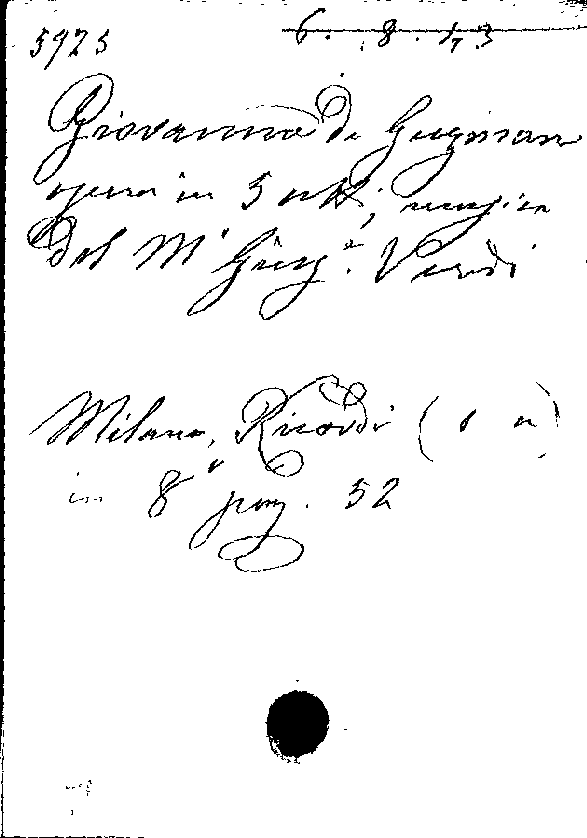 5925 6. 8. 17. 3
Giovanna de Guzman
opera in 5 atti, musica
del M° Gius.e Verdi
Milano, Ricordi (s a)
in 8° pag. 52